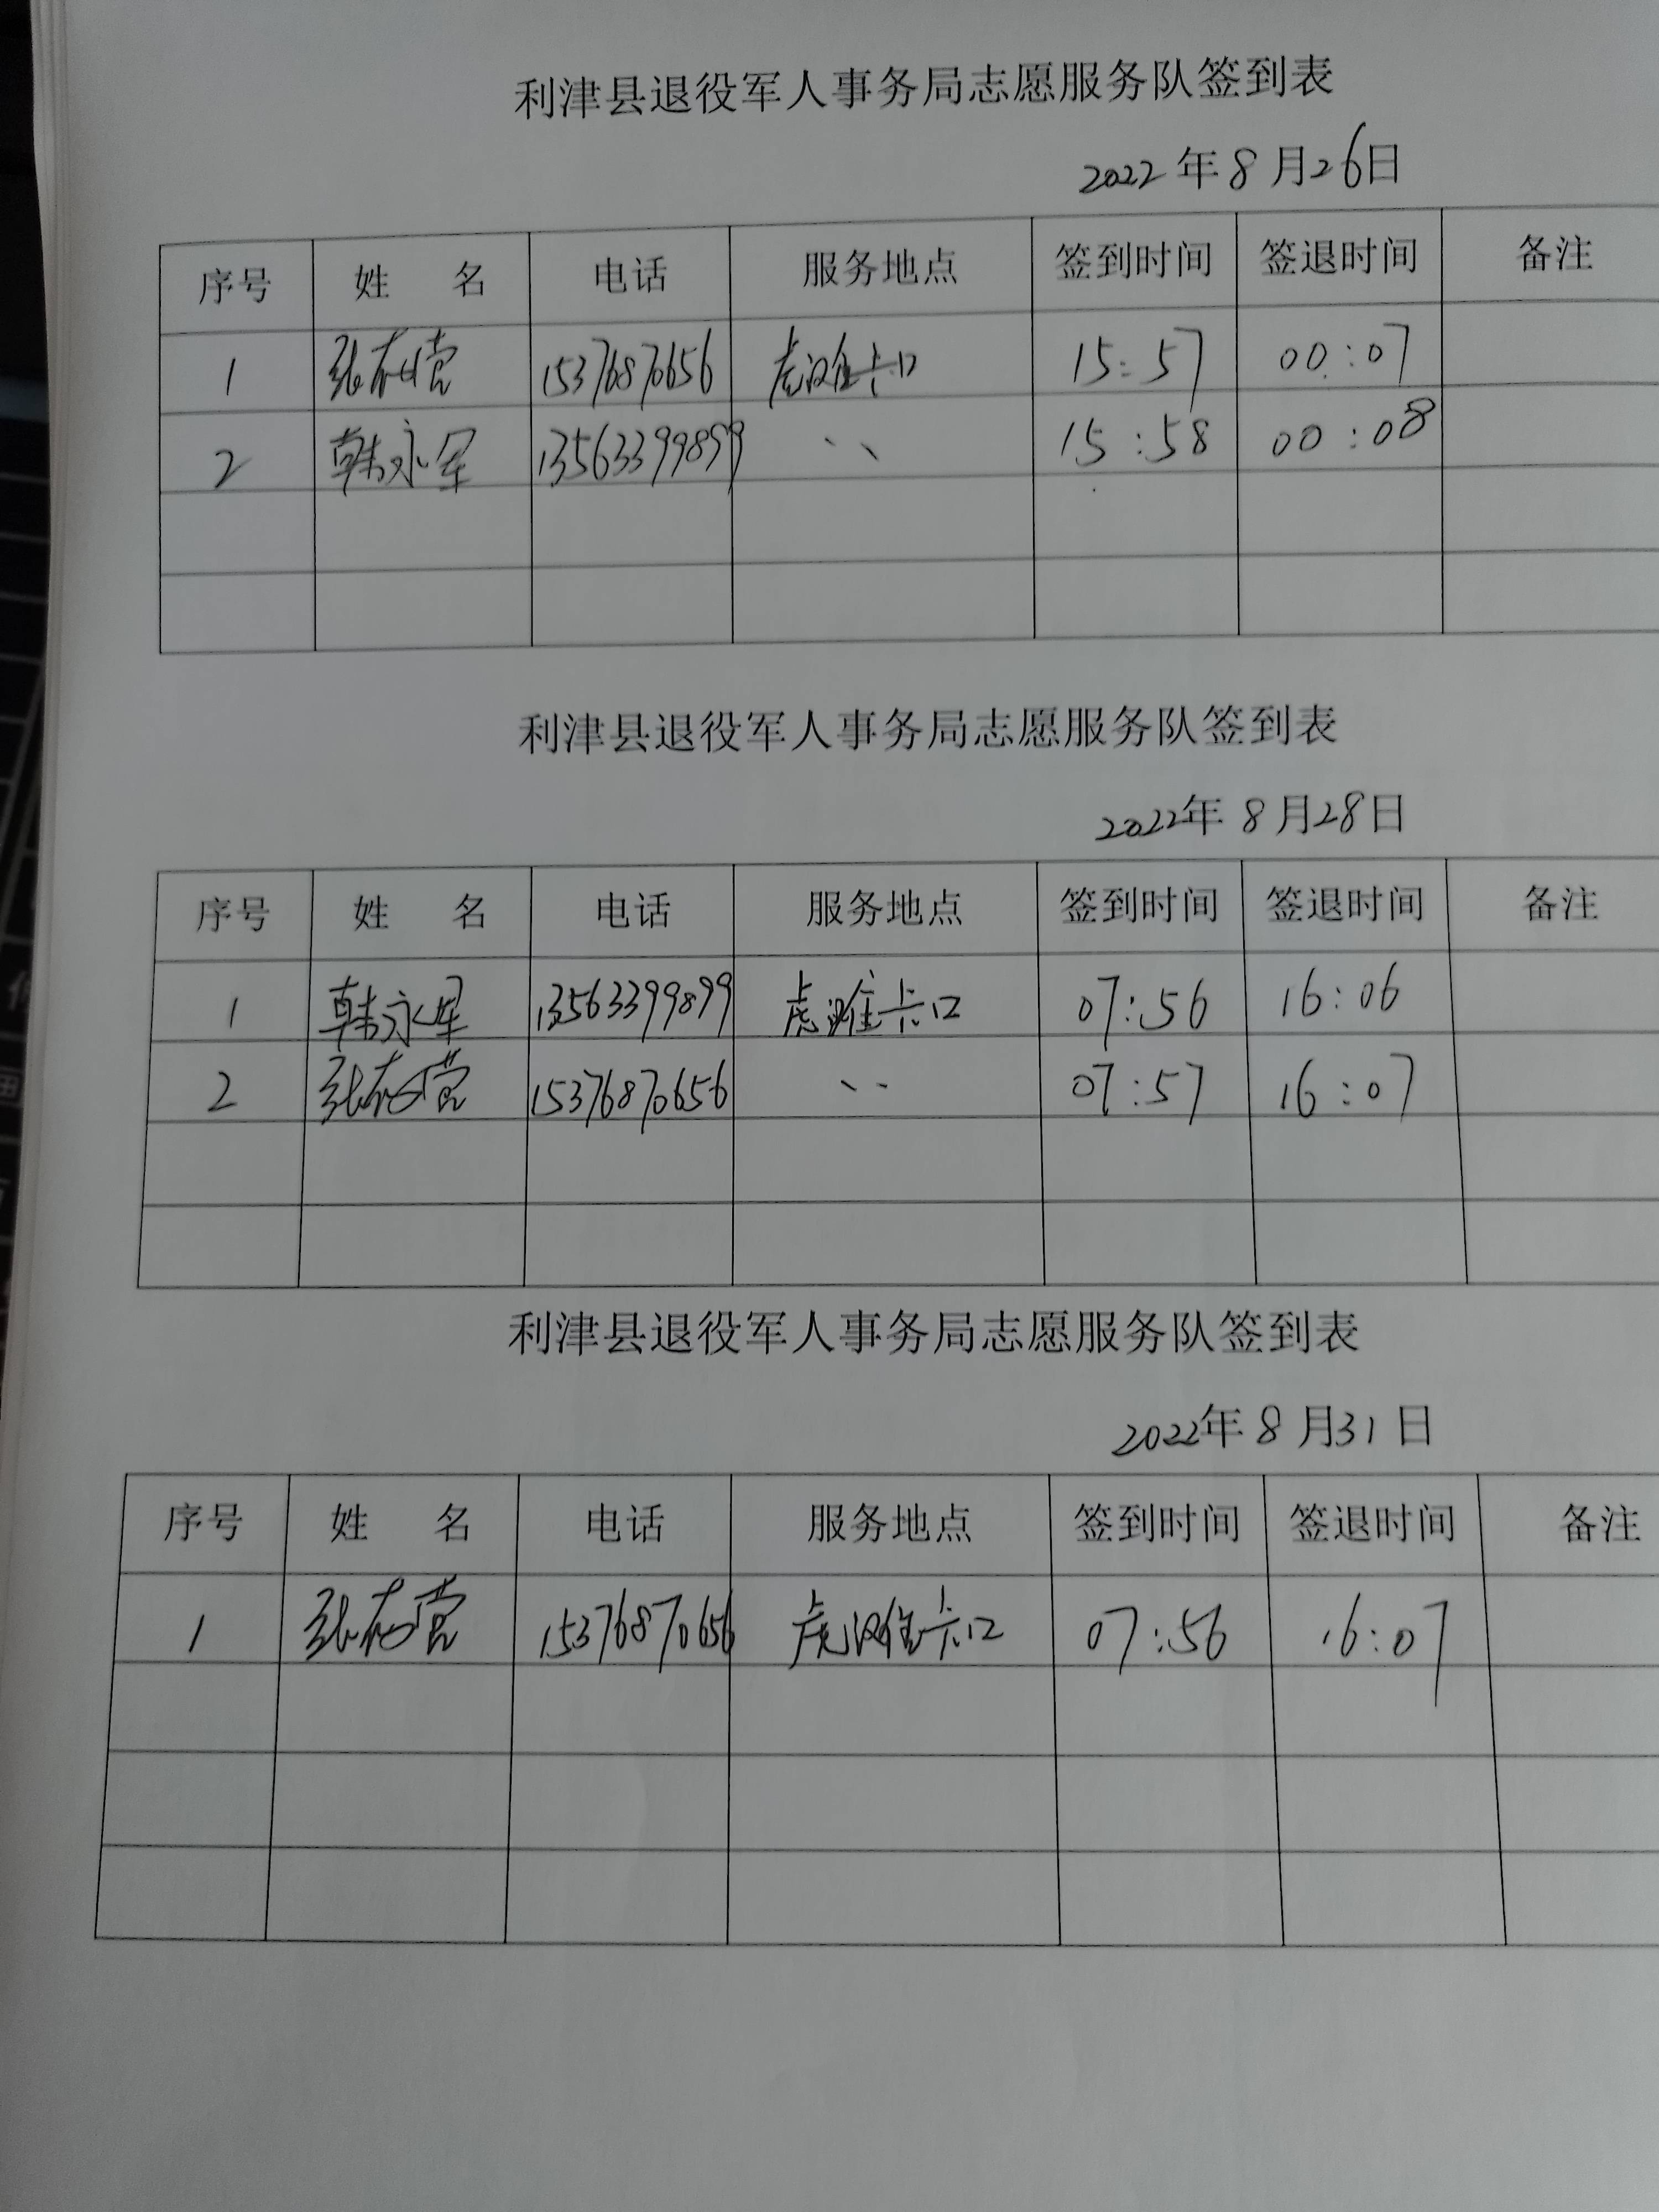 利津县退役军人事务局志愿服务队签到表
2022年8月26日
序号 姓 名 电话 服务地点 签到时间 签退时间 备注
1 张 15376870656 虎滩卡口 15:57 00:07
2 韩永军 13563399899 、、 15:58 00:08
利津县退役军人事务局志愿服务队签到表
2022年8月28日
序号 姓 名 电话 服务地点 签到时间 签退时间 备注
1 韩永军 13563399899 虎滩卡口 07:56 16:06
2 张 15376870656 、、 07:57 16:07
利津县退役军人事务局志愿服务队签到表
2022年8月31日
序号 姓 名 电话 服务地点 签到时间 签退时间 备注
1 张 15376870656 虎滩卡口 07:56 16:07